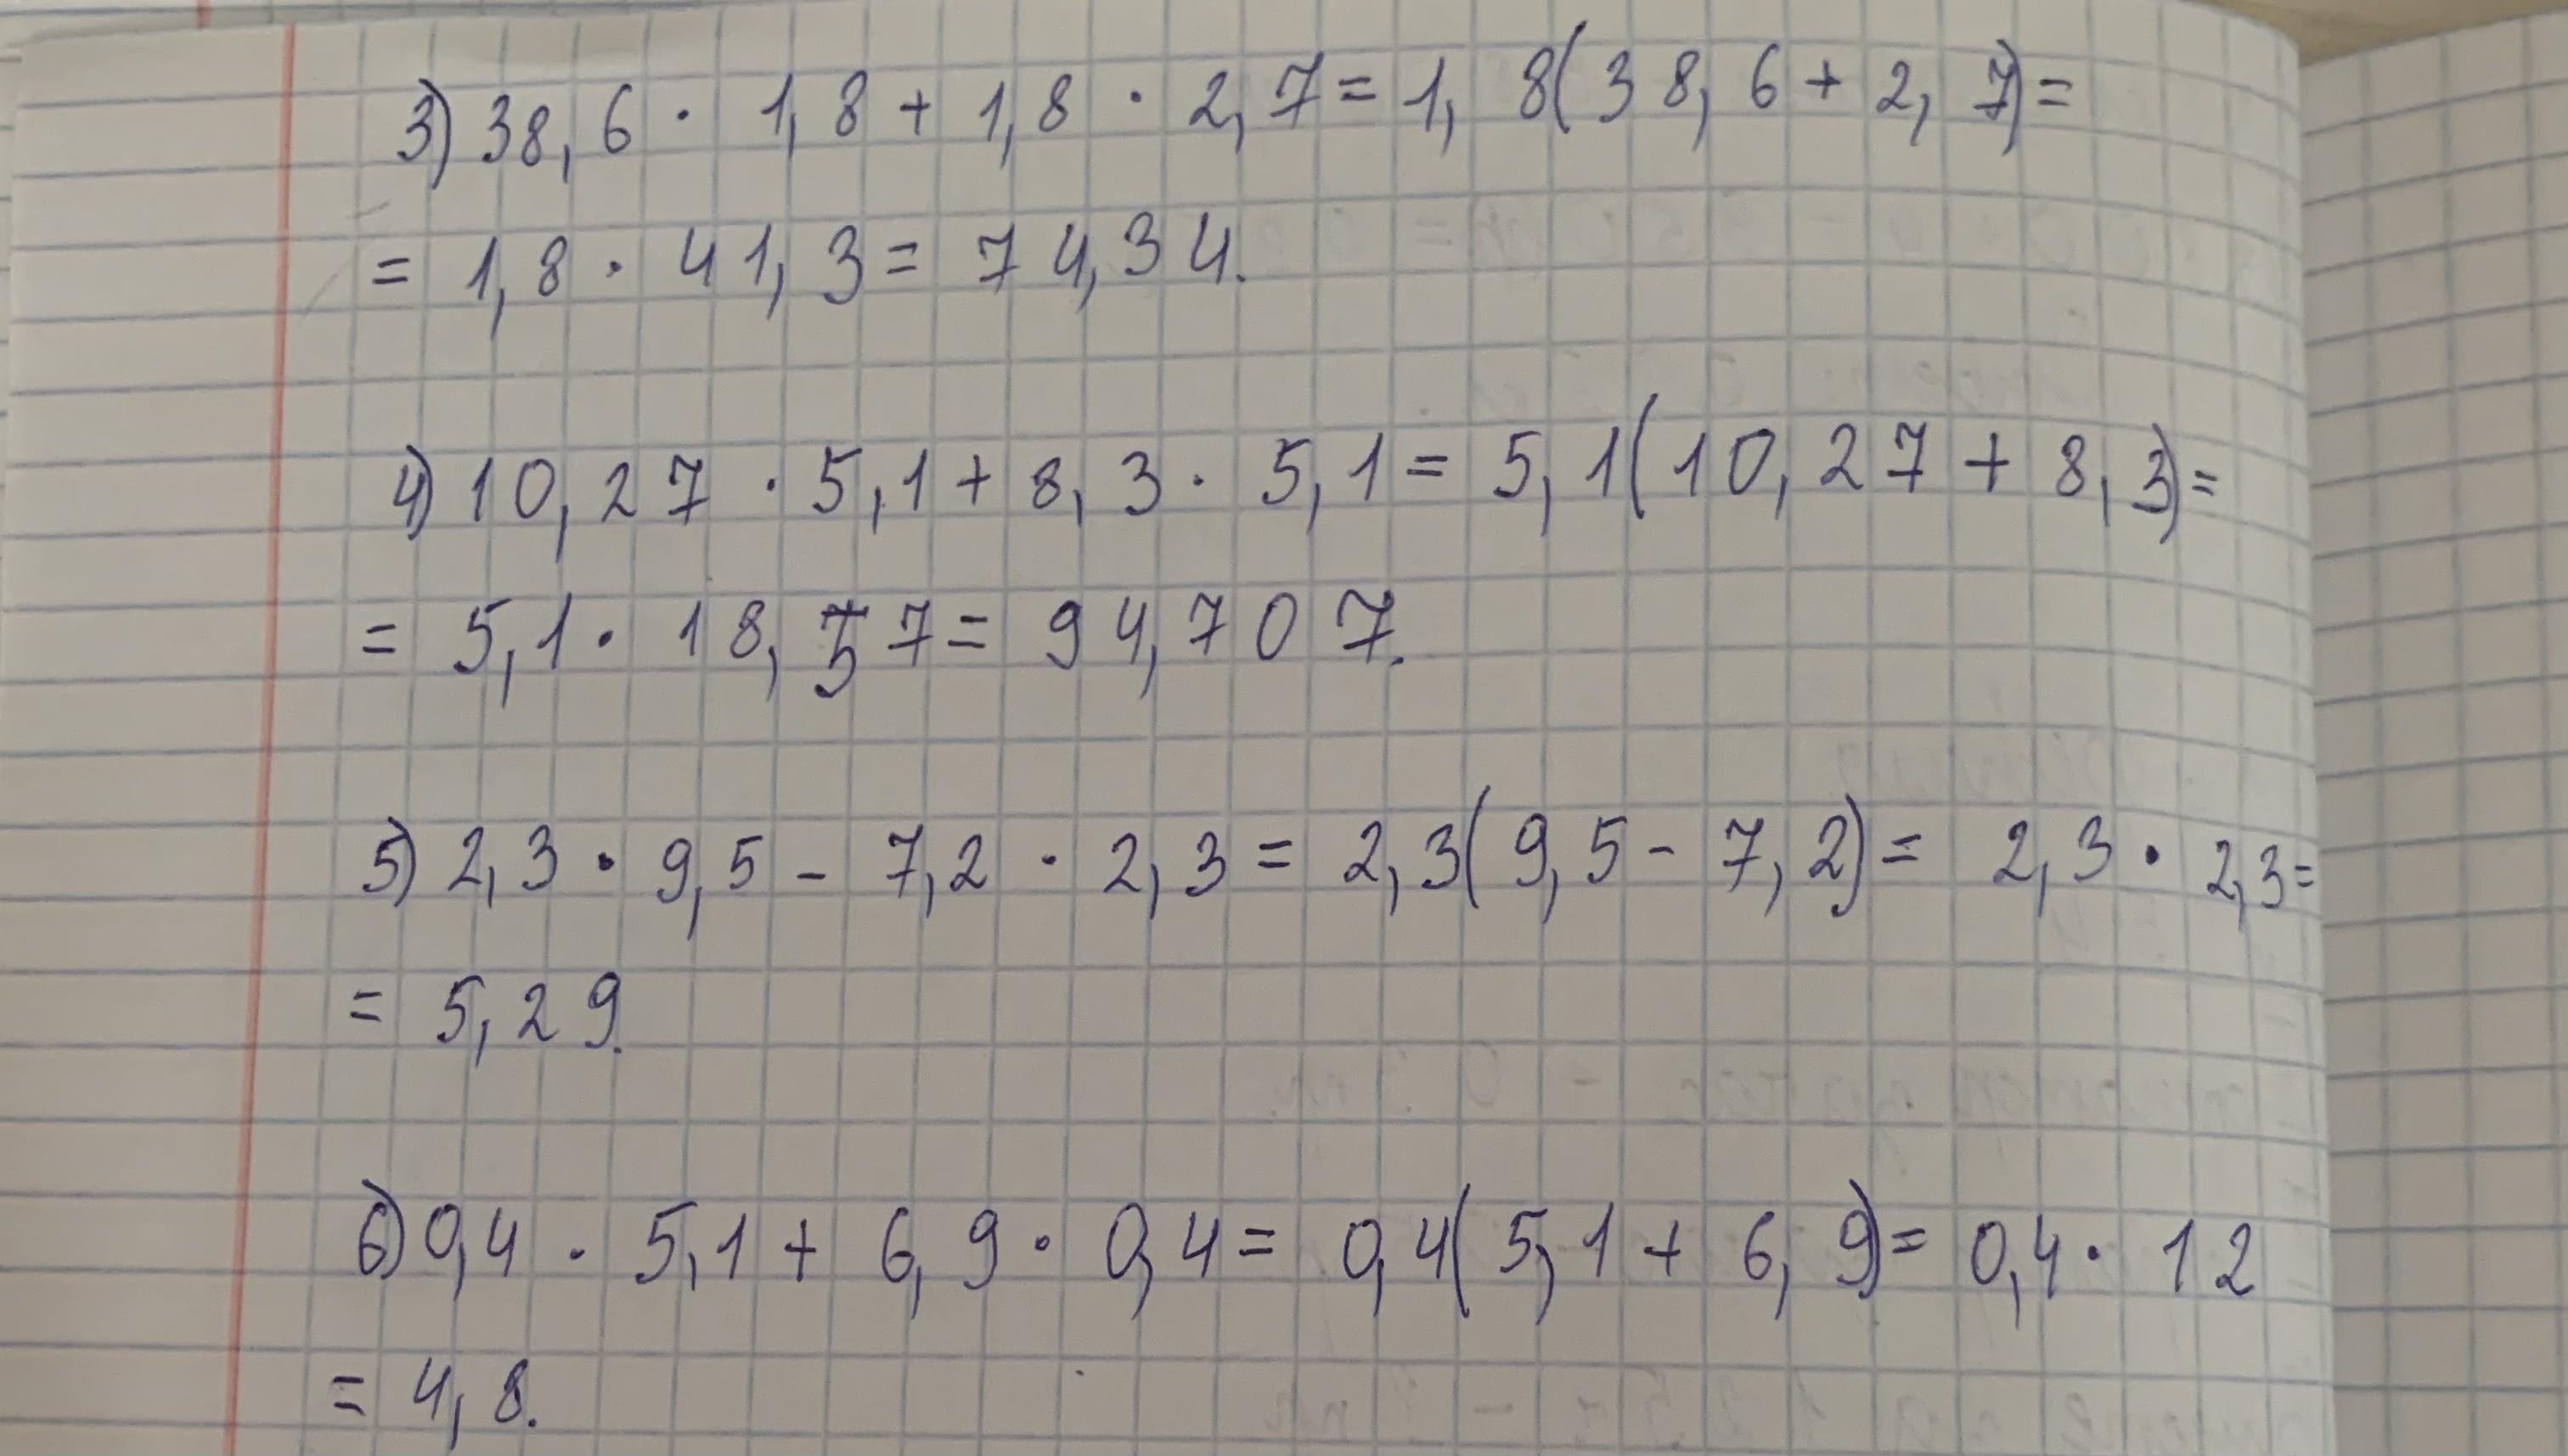 3) 38,6 · 1,8 + 1,8 · 2,7 = 1,8(38,6 + 2,7) =
= 1,8 · 41,3 = 74,34.
4) 10,27 · 5,1 + 8,3 · 5,1 = 5,1(10,27 + 8,3) =
= 5,1 · 18,57 = 94,707.
5) 2,3 · 9,5 - 7,2 · 2,3 = 2,3(9,5 - 7,2) = 2,3 · 2,3 =
= 5,29.
6) 0,4 · 5,1 + 6,9 · 0,4 = 0,4(5,1 + 6,9) = 0,4 · 12
= 4,8.